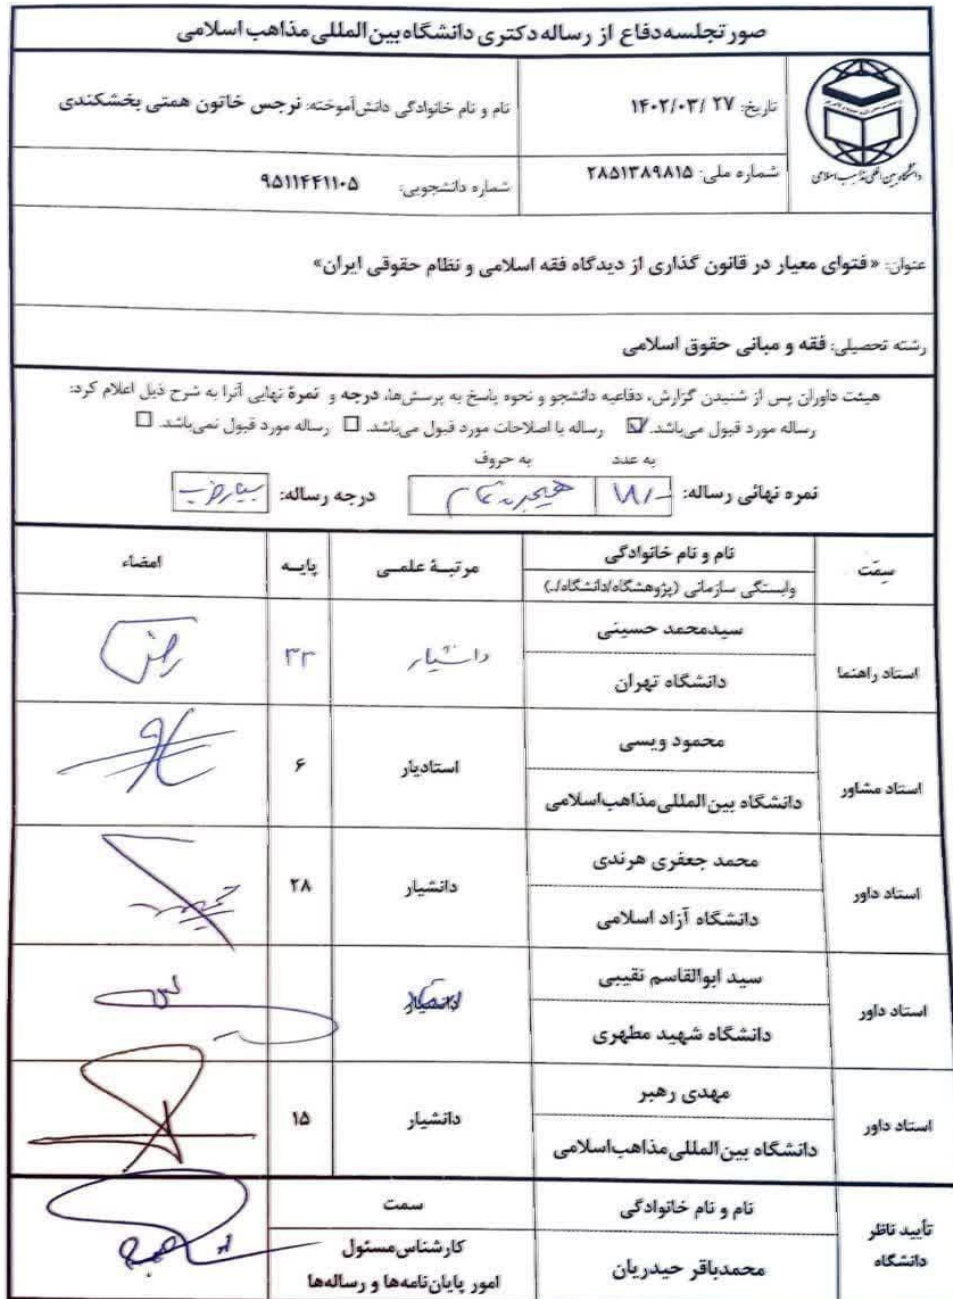 صورتجلسه دفاع از رساله دکتری دانشگاه بین‌المللی مذاهب اسلامی
دانشگاه بین المللی مذاهب اسلامی
تاریخ: ۱۴۰۲/۰۳/ ۲۷
نام و نام خانوادگی دانش‌آموخته: نرجس خاتون همتی بخشکندی
شماره ملی: ۲۸۵۱۳۸۹۸۱۵
شماره دانشجویی: ۹۵۱۱۴۴۱۱۰۵
عنوان: «فتوای معیار در قانون گذاری از دیدگاه فقه اسلامی و نظام حقوقی ایران»
رشته تحصیلی: فقه و مبانی حقوق اسلامی
هیئت داوران پس از شنیدن گزارش، دفاعیه دانشجو و نحوه پاسخ به پرسش‌ها، درجه و نمرهٔ نهایی آنرا به شرح ذیل اعلام کرد:
رساله مورد قبول می‌باشد. ☑ رساله با اصلاحات مورد قبول می‌باشد. ☐ رساله مورد قبول نمی‌باشد. ☐
به عدد به حروف
نمره نهائی رساله: ۱۸/- هیجده تمام درجه رساله: بسیار خوب
سِمَت
نام و نام خانوادگی
وابستگی سازمانی (پژوهشگاه/دانشگاه/..)
مرتبـهٔ علمـی
پایـه
امضاء
استاد راهنما
سیدمحمد حسینی
دانشگاه تهران
دانشیار
۳۳
استاد مشاور
محمود ویسی
دانشگاه بین‌المللی مذاهب‌اسلامی
استادیار
۶
استاد داور
محمد جعفری هرندی
دانشگاه آزاد اسلامی
دانشیار
۲۸
استاد داور
سید ابوالقاسم نقیبی
دانشگاه شهید مطهری
استاد داور
مهدی رهبر
دانشگاه بین‌المللی مذاهب‌اسلامی
دانشیار
۱۵
تأیید ناظر
دانشگاه
نام و نام خانوادگی
محمدباقر حیدریان
سمت
کارشناس‌مسئول
امور پایان‌نامه‌ها و رساله‌ها